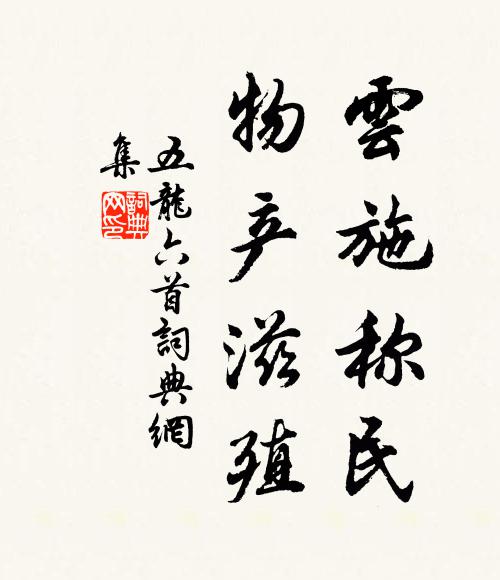 雲施称民
物产滋殖
五龍六首詞典網
集
詞典
网印